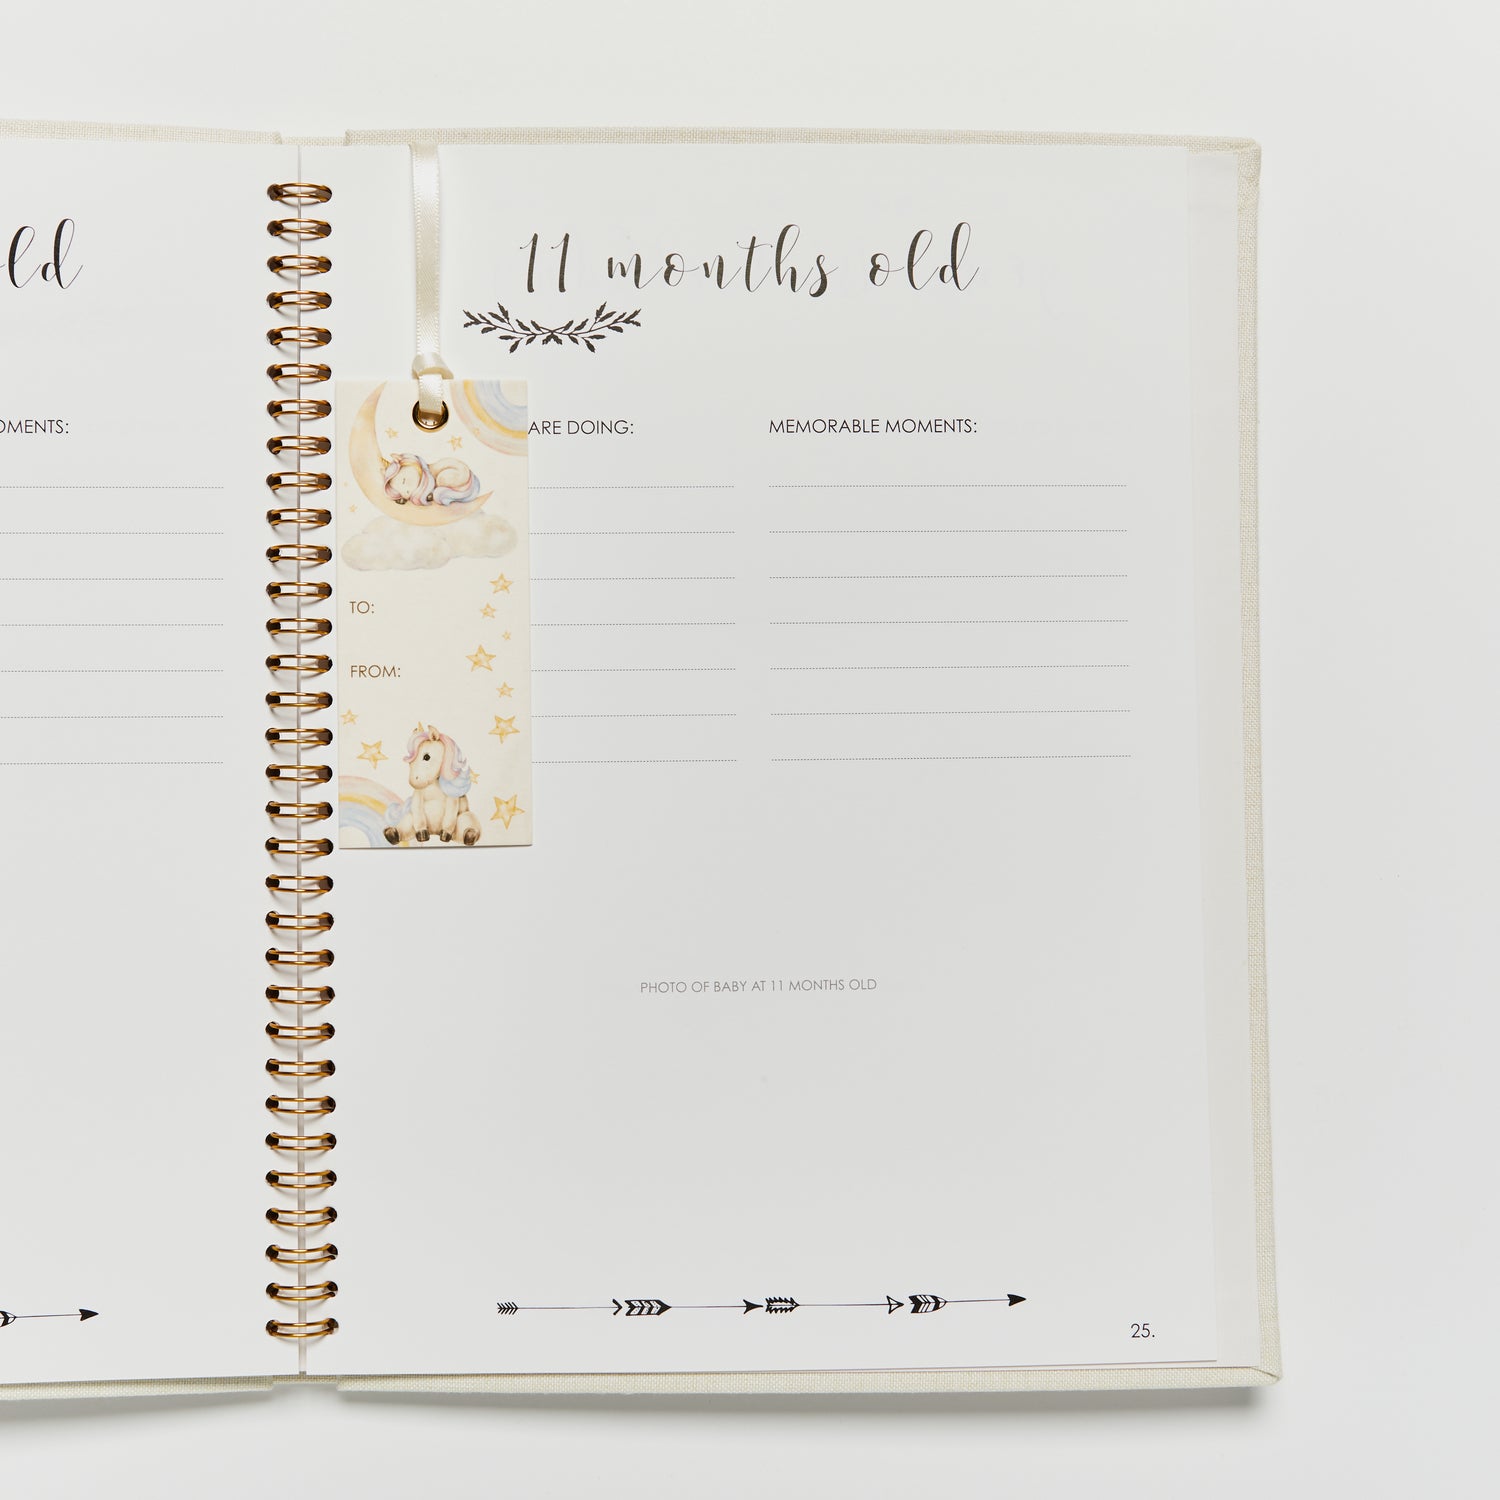 11 months old
ARE DOING:
MEMORABLE MOMENTS:
TO:
FROM:
PHOTO OF BABY AT 11 MONTHS OLD
25.